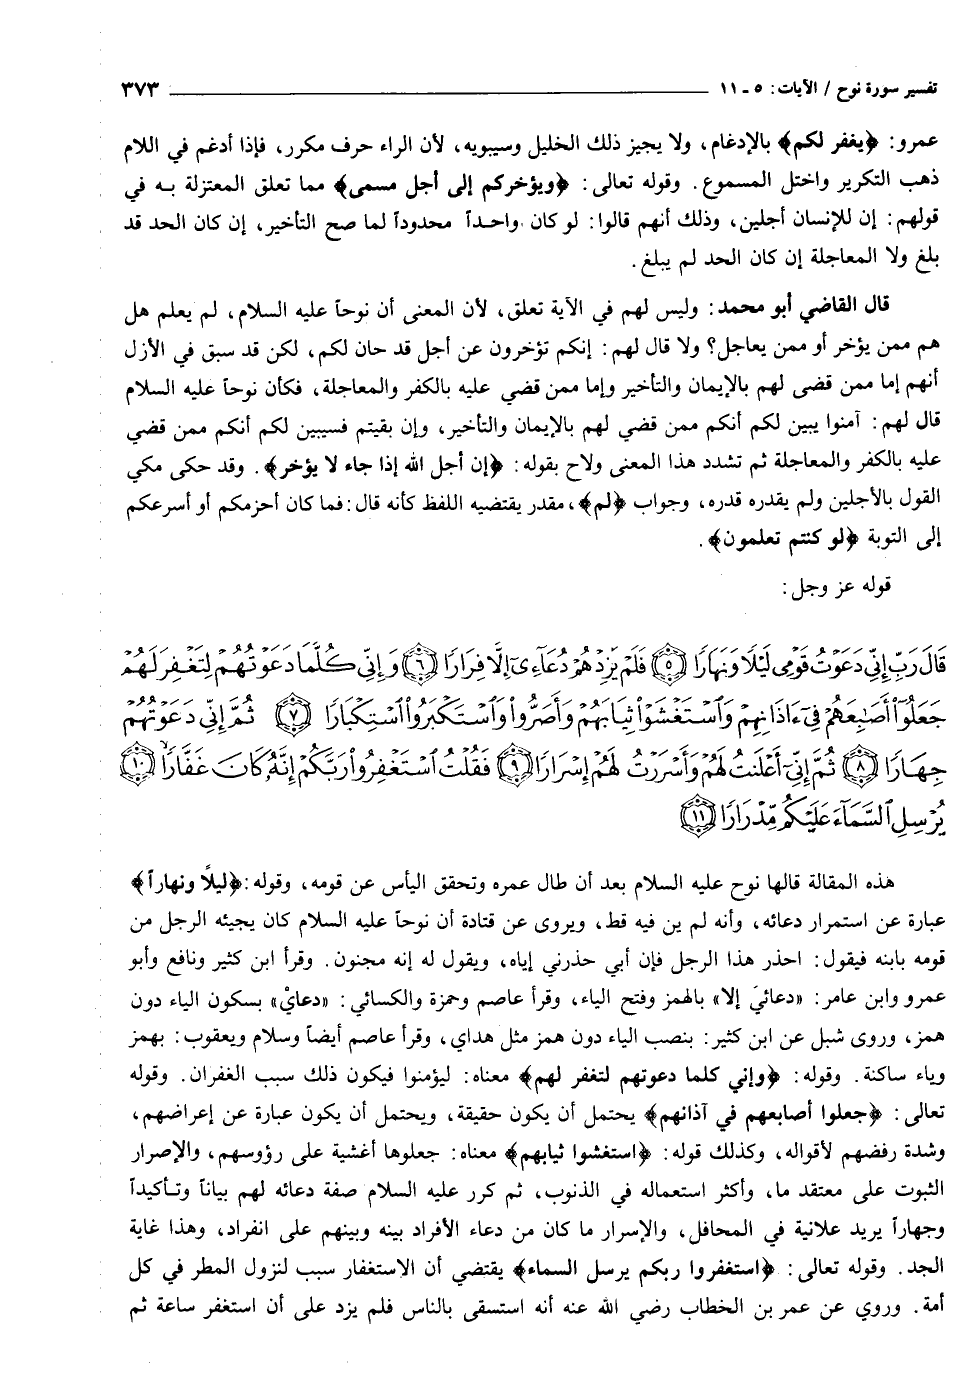 تفسير سورة نوح / الآيات: ٥ - ١١ ٣٧٣
عمرو: ﴿يغفر لكم﴾ بالإدغام، ولا يجيز ذلك الخليل وسيبويه، لأن الراء حرف مكرر، فإذا أدغم في اللام
ذهب التكرير واختل المسموع. وقوله تعالى: ﴿ويؤخركم إلى أجل مسمى﴾ مما تعلق المعتزلة به في
قولهم: إن للإنسان أجلين، وذلك أنهم قالوا: لو كان واحداً محدوداً لما صح التأخير، إن كان الحد قد
بلغ ولا المعاجلة إن كان الحد لم يبلغ.
قال القاضي أبو محمد: وليس لهم في الآية تعلق، لأن المعنى أن نوحاً عليه السلام، لم يعلم هل
هم ممن يؤخر أو ممن يعاجل؟ ولا قال لهم: إنكم تؤخرون عن أجل قد حان لكم، لكن قد سبق في الأزل
أنهم إما ممن قضى لهم بالإيمان والتأخير وإما ممن قضي عليه بالكفر والمعاجلة، فكأن نوحاً عليه السلام
قال لهم: آمنوا يبين لكم أنكم ممن قضي لهم بالإيمان والتأخير، وإن بقيتم فسيبين لكم أنكم ممن قضي
عليه بالكفر والمعاجلة ثم تشدد هذا المعنى ولاح بقوله: ﴿إن أجل الله إذا جاء لا يؤخر﴾. وقد حكى مكي
القول بالأجلين ولم يقدره قدره، وجواب ﴿لم﴾، مقدر يقتضيه اللفظ كأنه قال: فما كان أحزمكم أو أسرعكم
إلى التوبة ﴿لو كنتم تعلمون﴾.
قوله عز وجل:
قَالَ رَبِّ إِنِّي دَعَوْتُ قَوْمِي لَيْلًا وَنَهَارًا ﴿٥﴾ فَلَمْ يَزِدْهُمْ دُعَآءِيٓ إِلَّا فِرَارًا ﴿٦﴾ وَإِنِّي كُلَّمَا دَعَوْتُهُمْ لِتَغْفِرَ لَهُمْ
جَعَلُوٓا۟ أَصَٰبِعَهُمْ فِيٓ ءَاذَانِهِمْ وَٱسْتَغْشَوْا۟ ثِيَابَهُمْ وَأَصَرُّوا۟ وَٱسْتَكْبَرُوا۟ ٱسْتِكْبَارًا ﴿٧﴾ ثُمَّ إِنِّي دَعَوْتُهُمْ
جِهَارًا ﴿٨﴾ ثُمَّ إِنِّيٓ أَعْلَنتُ لَهُمْ وَأَسْرَرْتُ لَهُمْ إِسْرَارًا ﴿٩﴾ فَقُلْتُ ٱسْتَغْفِرُوا۟ رَبَّكُمْ إِنَّهُۥ كَانَ غَفَّارًا ﴿١٠﴾
يُرْسِلِ ٱلسَّمَآءَ عَلَيْكُم مِّدْرَارًا ﴿١١﴾
هذه المقالة قالها نوح عليه السلام بعد أن طال عمره وتحقق اليأس عن قومه، وقوله: ﴿ليلًا ونهاراً﴾
عبارة عن استمرار دعائه، وأنه لم ين فيه قط، ويروى عن قتادة أن نوحاً عليه السلام كان يجيئه الرجل من
قومه بابنه فيقول: احذر هذا الرجل فإن أبي حذرني إياه، ويقول له إنه مجنون. وقرأ ابن كثير ونافع وأبو
عمرو وابن عامر: «دعائيَ إلا» بالهمز وفتح الياء، وقرأ عاصم وحمزة والكسائي: «دعايْ» بسكون الياء دون
همز، وروى شبل عن ابن كثير: بنصب الياء دون همز مثل هداي، وقرأ عاصم أيضاً وسلام ويعقوب: بهمز
وياء ساكنة. وقوله: ﴿وإني كلما دعوتهم لتغفر لهم﴾ معناه: ليؤمنوا فيكون ذلك سبب الغفران. وقوله
تعالى: ﴿جعلوا أصابعهم في آذانهم﴾ يحتمل أن يكون حقيقة، ويحتمل أن يكون عبارة عن إعراضهم،
وشدة رفضهم لأقواله، وكذلك قوله: ﴿استغشوا ثيابهم﴾ معناه: جعلوها أغشية على رؤوسهم، والإصرار
الثبوت على معتقد ما، وأكثر استعماله في الذنوب، ثم كرر عليه السلام صفة دعائه لهم بياناً وتأكيداً
وجهاراً يريد علانية في المحافل، والإسرار ما كان من دعاء الأفراد بينه وبينهم على انفراد، وهذا غاية
الجد. وقوله تعالى: ﴿استغفروا ربكم يرسل السماء﴾ يقتضي أن الاستغفار سبب لنزول المطر في كل
أمة. وروي عن عمر بن الخطاب رضي الله عنه أنه استسقى بالناس فلم يزد على أن استغفر ساعة ثم